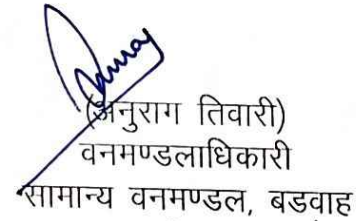 (अनुराग तिवारी)
वनमण्डलाधिकारी
सामान्य वनमण्डल, बडवाह